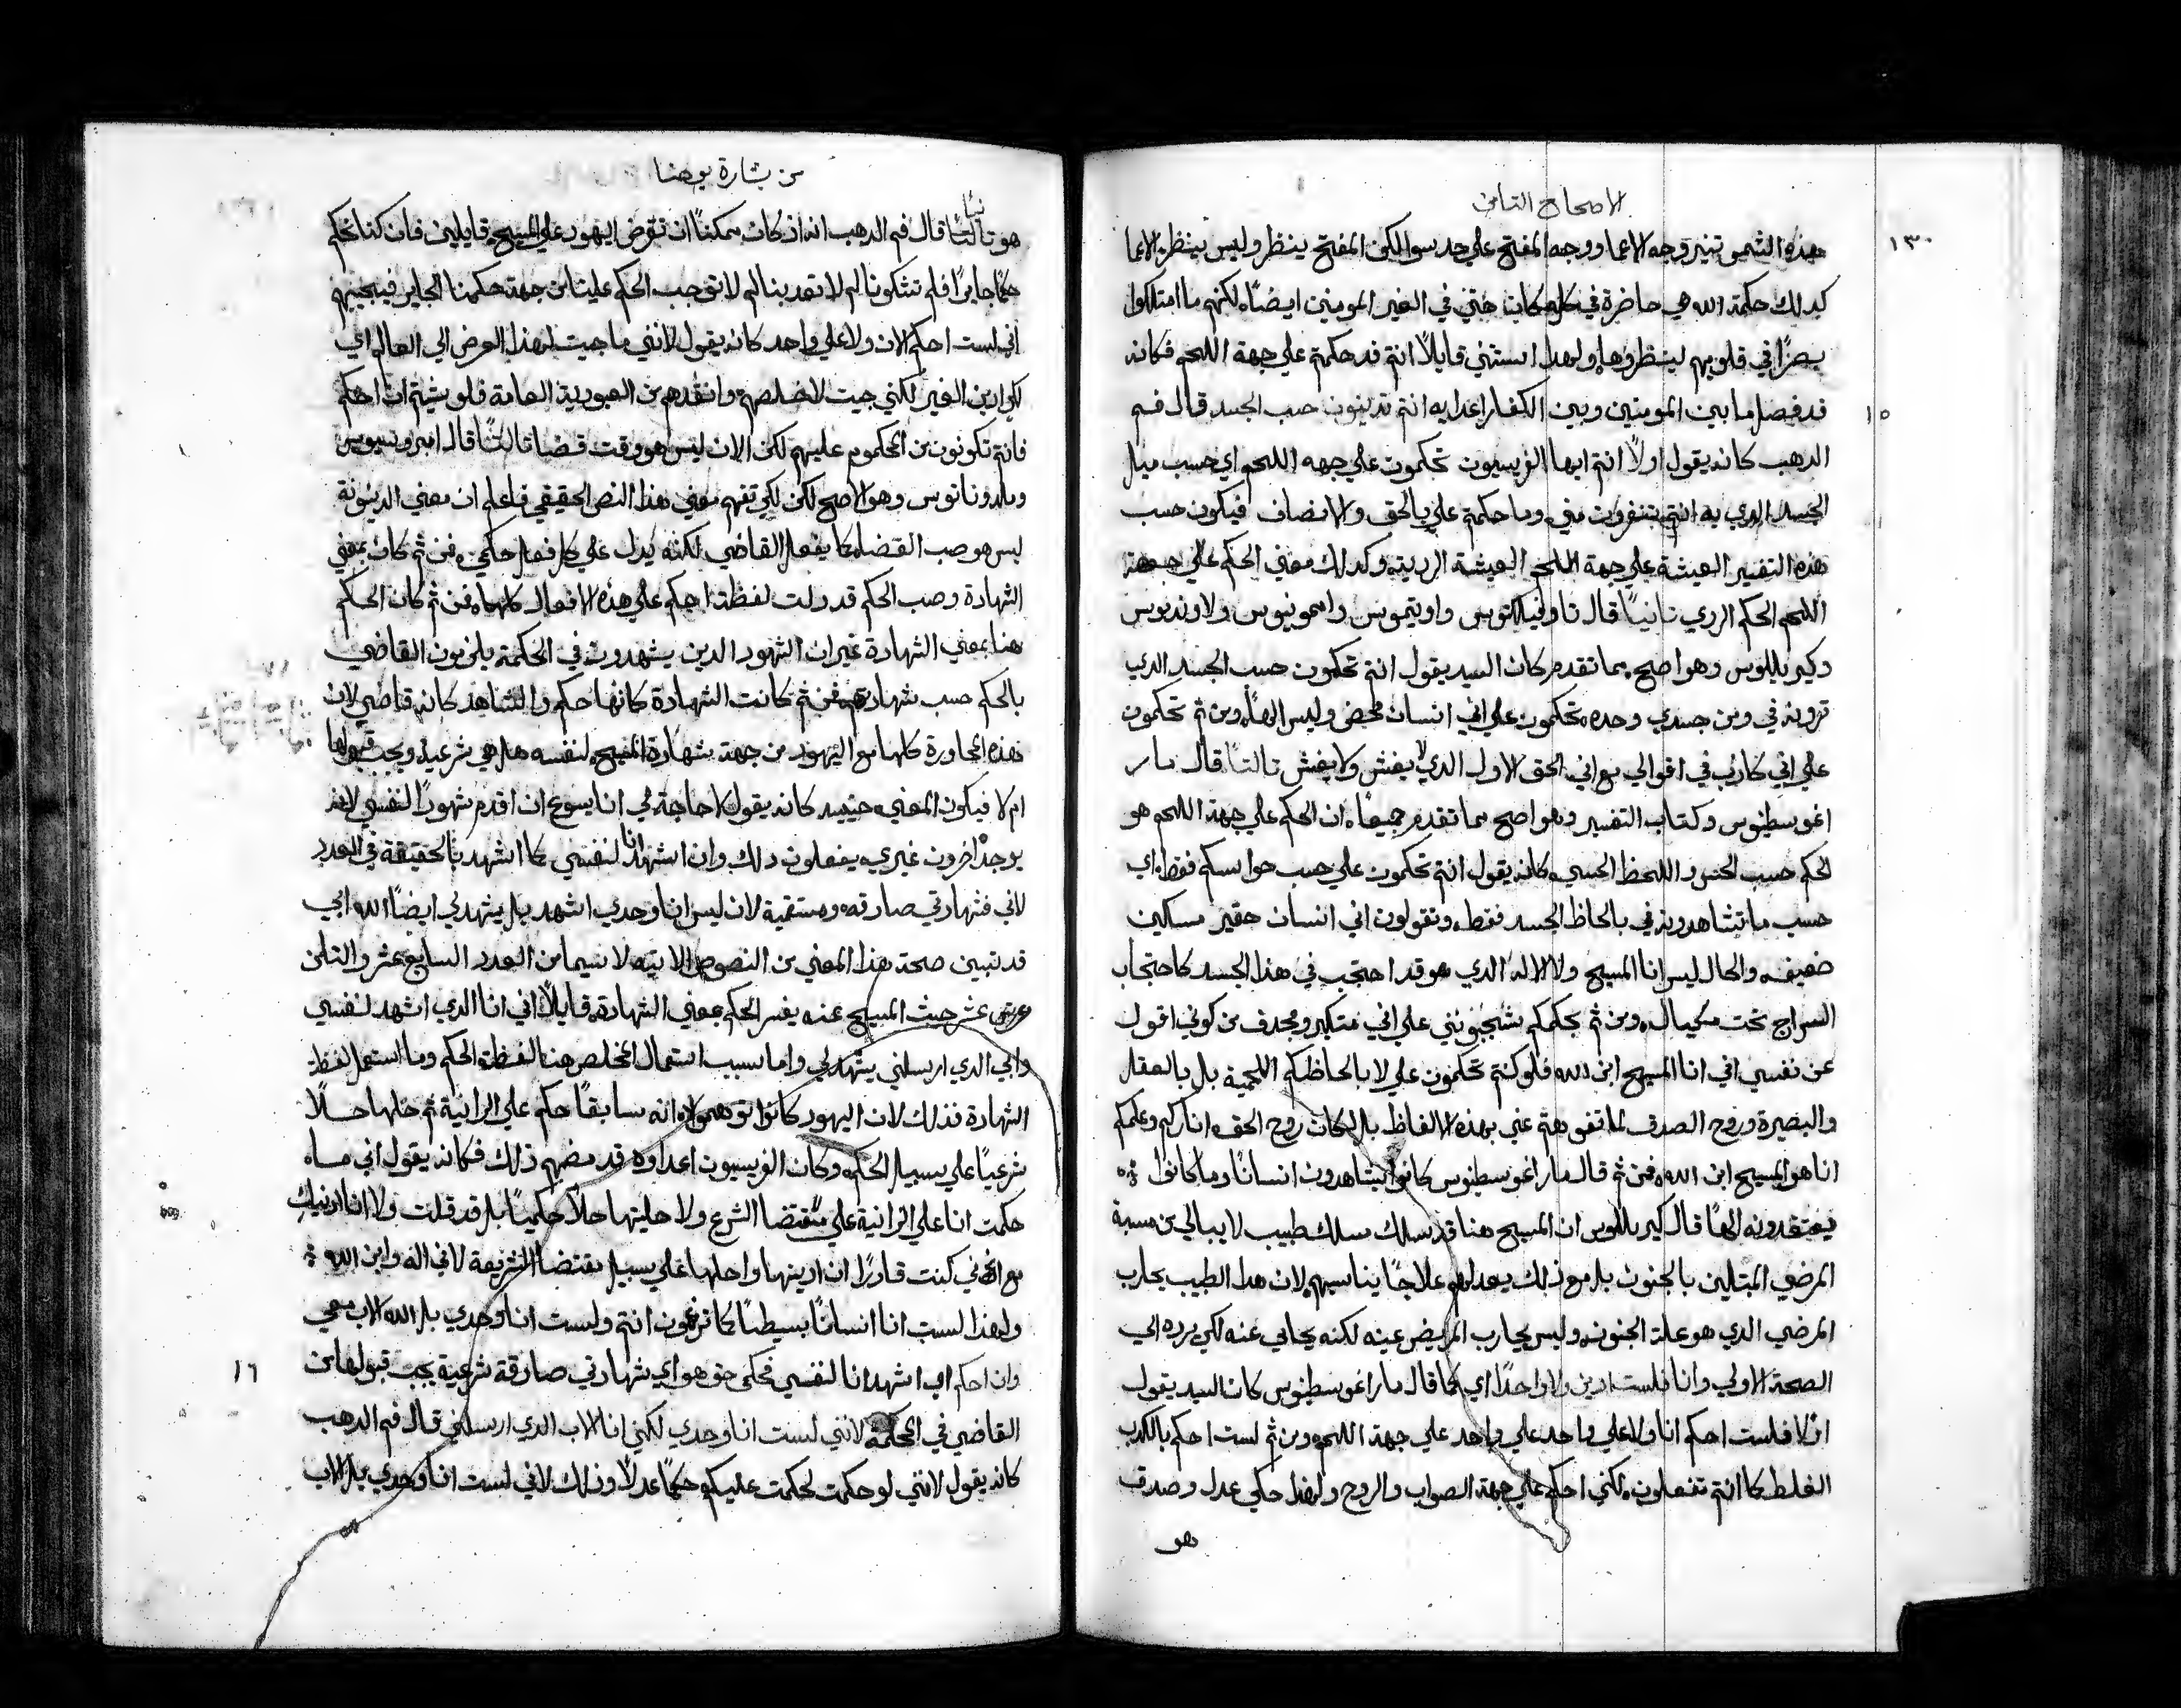 الاصحاح التامن
١٣٠
هذه الشمس تنير وجه الاعما ووجه المفتح علي حد سوا لكن المفتح ينظر وليس ينظر الاعما
كدلك حكمة الله هي حاضرة في كل مكان حتي في الغير المومنين ايضًا لكنهم ما امتلكوا
بصرًا في قلوبهم لينظروها ولهدا استتني قايلاً انتم قد حكمتم علي جهة اللحم فكانه
١٥
قد فصل ما بين المومنين وبين الكفار اعدايه انتم تدينون حسب الجسد قال فم
الدهب كانه يقول اولاً انتم ايها الفريسيون تحكمون علي جهه اللحم اي حسب ميل
الجسد الدي به انتم تنفرون مني وما حكمتم علي بالحق والانصاف فيكون حسب
هذه التفسير العيشة علي جهة اللحم العيشة الرديه وكدلك معني الحكم علي جهة
اللحم الحكم الردي تانيًا قال تاوفيلكتوس واوتيموس وامونيوس ولاونديوس
وكيرلللوس وهو اصح مما تقدم كان السيد يقول انتم تحكمون حسب الجسد الدي
ترونه في ومن جسدي وحده تحكمون علي اني انسان محض وليس الهًا ومن ثم تحكمون
علي اني كادب في اقوالي مع اني الحق الاول الدي لا يغش ولا يغش تالتًا قال مار
اغوسطينوس وكتاب التفسير وهو اصح مما تقدم جميعًا ان الحكم علي جهة اللحم هو
الحكم حسب الحس واللحظ الحسي كانه يقول انتم تحكمون علي حسب حواسكم فقط اي
حسب ما تشاهدونه في بالحاظ الجسد فقط وتقولون اني انسان حقير مسكين
ضعيف والحال ليس انا المسيح ولا الاله الدي هو قد احتجب في هذا الجسد كاحتجاب
السراج تحت مكيال ومن ثم بحكمكم تشجبونني علي اني متكبر ومجدف من كوني اقول
عن نفسي اني انا المسيح ابن الله فلو كنتم تحكمون علي لا بالحاظكم اللحمية بل بالعقل
والبصيرة وروح الصدق لما تفوهتم عني بهذه الالفاظ بل لكان روح الحق اناركم وعلمكم
انا هو المسيح ابن الله فمن ثم قال مار اغوسطينوس كانوا يشاهدون انسانًا وما كانوا
يعتقدونه الهًا قال كيرللوس ان المسيح هنا قد سلك مسلك طبيب لا يبالي من مسبة
المرضي المبتلين بالجنون بل مع ذلك يعد لهم علاجًا يناسبهم لان هدا الطبيب يحارب
المرضي الدي هو علة الجنون وليس يحارب المريض عينه لكنه يحابي عنه لكي يرده الي
الصحة الاولي وانا فلست ادين ولا واحدًا اي كما قال مار اغوسطينوس كان السيد يقول
انا فلست احكم انا ولا علي واحد علي واحد علي جهة اللحم ومن ثم لست احكم بالكدب
الغلط كما انتم تفعلون لكني احكم علي جهة الصواب والروح ولهذا حكمي عدل وصدق
هو
من بشارة يوحنا
هو تالتًا قال فم الدهب انه اذ كان ممكنًا ان تقرض اليهود علي المسيح قايلين فان كنا نحكم
حكمًا جايرًا فلم تشكونا لم لا تعدبنا لم لا توجب الحكم علينا من جهة حكمنا الجاير فيجيبهم
اني لست احكم الان ولا علي واحد كانه يقول لانني ما جيت لهذا الغرض الي العالم اي
لكي ادين الغير لكني جيت لاخلصهم وانقدهم من العبودية العامة فلو شيتم ان احكم
فانتم تكونون من المحكوم عليهم لكن الان ليس هو وقت قضا تالتًا قال امبروسيوس
وملدوناتوس وهو الاصح لكن لكي تفهم معني هذا النص الحقيقي فاعلم ان معني الدينونة
ليس هو حسب القضا كما يفعل القاضي لكنه يدل علي كل فعل حكمي فمن ثم كان بمعني
الشهادة وصب الحكم قد دلت لفظة احكم علي هذه الافعال كلها فمن ثم كان الحكم
هنا بمعني الشهادة غير ان الشهود الدين يشهدون في الحكمة يلزمون القاضي
بالحكم حسب شهادتهم فمن ثم كانت الشهادة كانها حكم والشاهد كانه قاضي لان
هذه المحاورة كلها مع اليهود من جهة شهادة المسيح لنفسه هل هي شرعية ويجب قبولها
ام لا فيكون المعني حينيد كانه يقول لا حاجة لي انا يسوع ان اقدم شهودًا لنفسي لانه
يوجد اخرون غيري يفعلون دلك وان اشهد انا لنفسي كما اشهد بالحقيقة في العدد
لاني فشهادتي صادقه ومستقيمة لان ليس انا وحدي اشهد بل يشهد لي ايضًا الله ابي
قد تبين صحة هذا المعني من النصوص الاتيه لا سيما من العدد السابع عشر والتامن
عشر حيث المسيح عنه يفسر الحكم بمعني الشهادة قايلاً اني انا الدي اشهد لنفسي
وابي الدي ارسلني يشهد لي واما سبب استعمال المخلص هنا لفظة الحكم وما استعمل لفظة
الشهادة فذلك لان اليهود كانوا توهموا انه سابقًا حكم علي الزانية ثم حلها حلاً
شرعيًا علي سبيل الحكم وكان الفريسيون اعداوه قد مضهم ذلك فكانه يقول اني ما
حكمت انا علي الزانية علي مقتضا الشرع ولا حليتها حلاً حكميًا بل قد قلت ولا انا ادينك
مع انني كنت قادرًا ان ادينها واحلها علي سبيل مقتضا الشريعة لاني اله وابن الله
ولهذا لست انا انسانًا بسيطًا كما تزعمون انتم ولست انا وحدي بل الله الاب معي
١٦
وان احكم اي اشهد انا لنفسي فحكمي حق هو اي شهادتي صادقة شرعية يجب قبولها من
القاضي في المحكمة لانني لست انا وحدي لكني انا والاب الدي ارسلني قال فم الدهب
كانه يقول لانني لو حكمت لحكمت عليكم حكمًا عدلاً وذلك لاني لست انا وحدي بل الاب